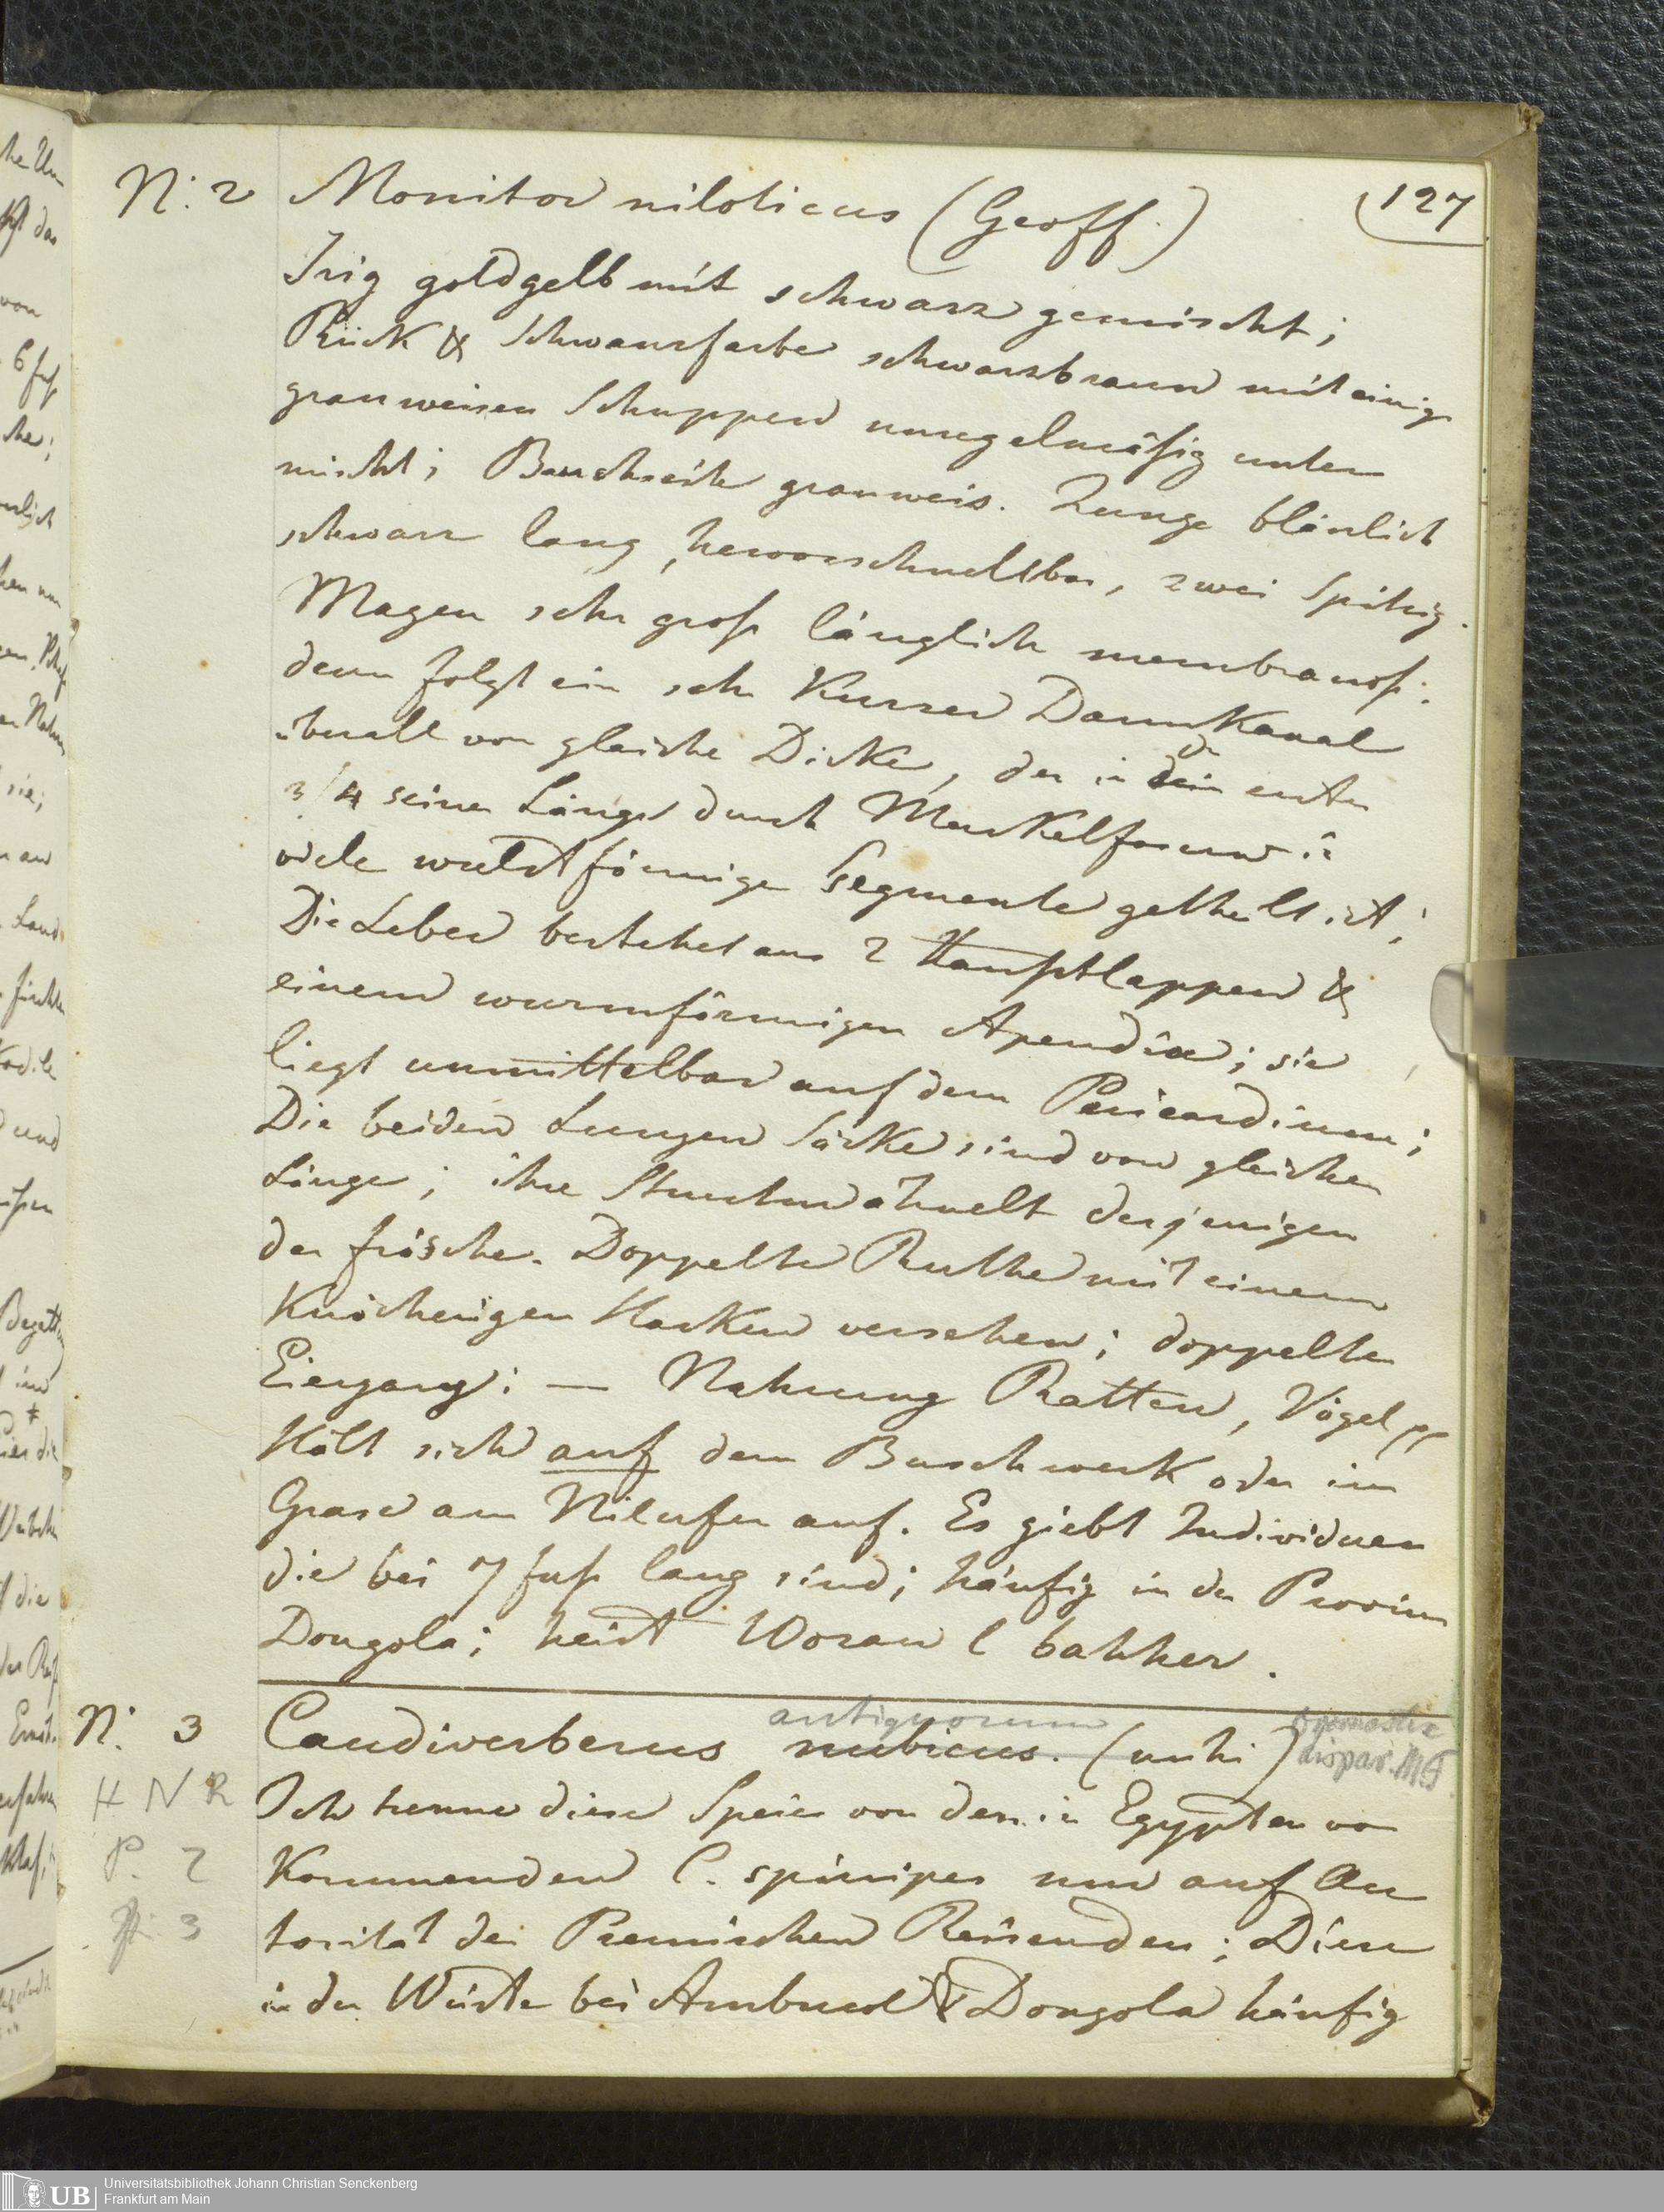 127
N: 2 Monitor niloticus (Geoff.)
Irig goldgelb mit schwarz gemischt;
Rück & Schwanzfarbe schwarzbraun mit einig
grauweisen Schuppen unregelmäßig unter
mischt; Bauchseite grauweis. Zunge bläulich
schwarz lang, hervorschnellbar, zwei Spitzig.
Magen sehr groß länglich membranos:
dann folgt ein sehr Kurzer DarmKanal
überall von gleicher Dicke, der in den ersten
3/4 seiner Länge durch Muskelfasern in
viele wulstförmige Segmente getheilt ist;
Die Leber bestehet aus 2 Hauptlappen &
einem wurmförmigen Apendix; sie
liegt unmittelbar auf dem Pericardium;
Die beiden Lungen Säcke sind von gleicher
Länge; ihre Structur ähnelt derjenigen
der frösche. Doppelte Ruthe mit einem
Knöcherigen Hacken versehen; doppelter
Eiergang: — Nahrung Ratten, Vögel pp
Hält sich auf dem Buschwerk oder im
Grase am Nilufer auf. Es giebt Individuen
die bei 7 fuß lang sind; häufig in der Provinz
Dongola; heist Woran l bahher.
antiquorum
N: 3 Caudiverberus nubicus. (mihi) dispar. M
H N R Ich trenne diese Speies von dem in Egypten vor
P. 2 Kommenden C. spinipes nur auf Au
3 toritat der Preusischen Reisenden; Diese
in der Wüste bei Ambucol & Dongola häufig
UB Universitätsbibliothek Johann Christian Senckenberg
Frankfurt am Main